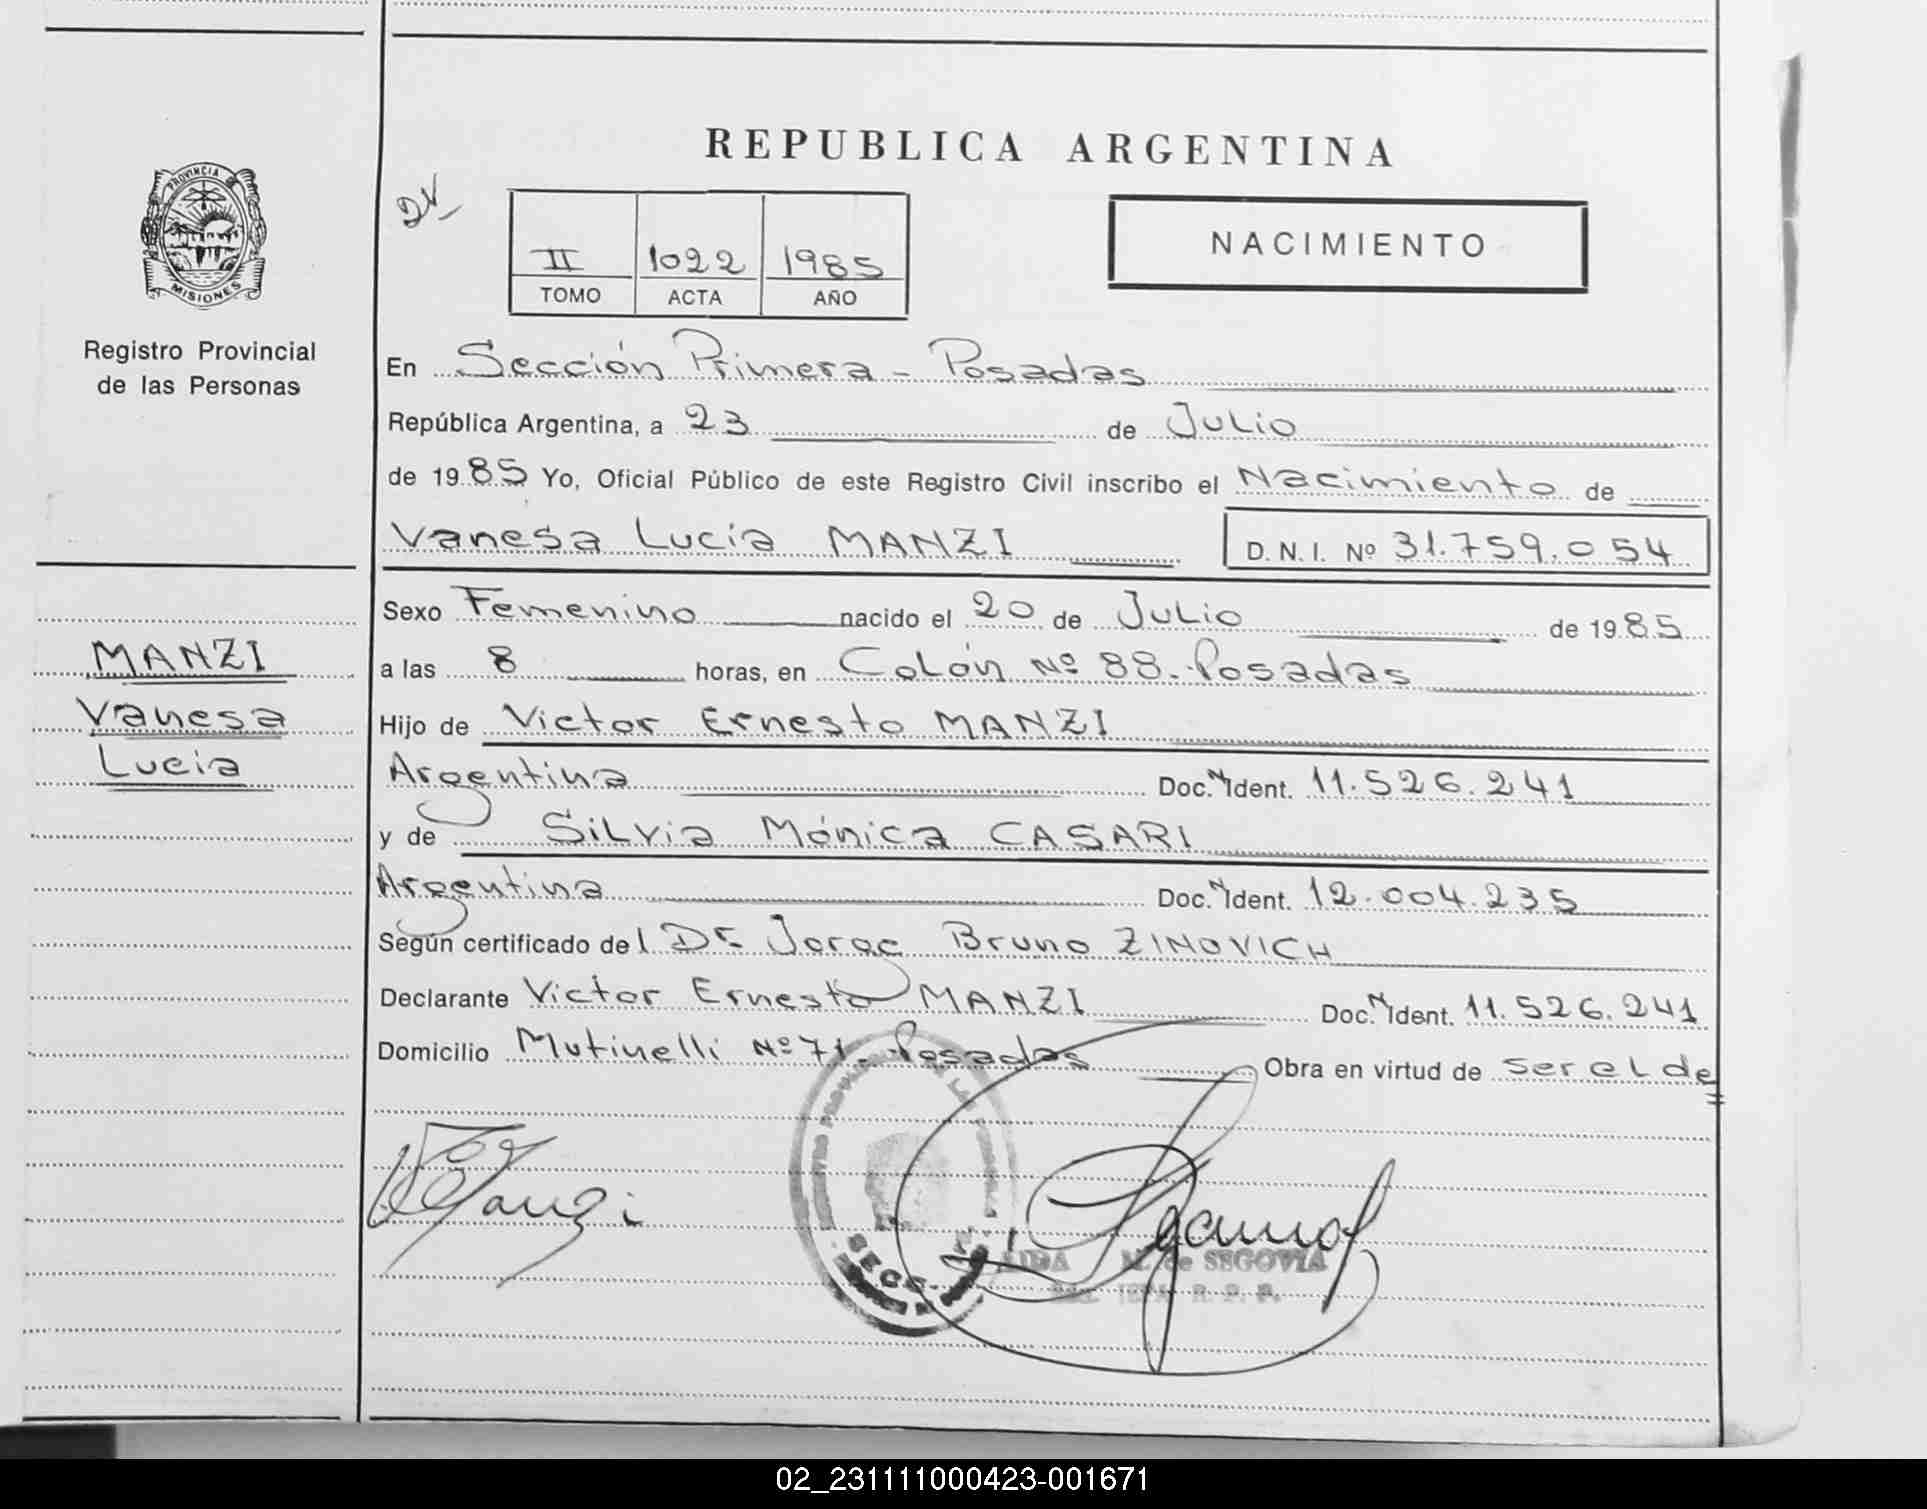 REPUBLICA ARGENTINA
PROVINCIA DE
MISIONES
Registro Provincial
de las Personas
II 1022 1985
TOMO ACTA AÑO
NACIMIENTO
En Sección Primera - Posadas
República Argentina, a 23 de Julio
de 1985 Yo, Oficial Público de este Registro Civil inscribo el Nacimiento de
Vanesa Lucia MANZI D. N. I. Nº 31.759.054
Sexo Femenino nacido el 20 de Julio de 1985
a las 8 horas, en Colón Nº 88. Posadas
Hijo de Victor Ernesto MANZI
Argentina Doc. N Ident. 11.526.241
y de Silvia Mónica CASARI
Argentina Doc. N Ident. 12.004.235
Según certificado del Dr. Jorge Bruno ZINOVICH
Declarante Victor Ernesto MANZI Doc. N Ident. 11.526.241
Domicilio Mutinelli Nº 71. Posadas Obra en virtud de ser el de=
MANZI
Vanesa
Lucia
Manzi
SECC.
M. de SEGOVIA
R. P. P.
02_231111000423-001671